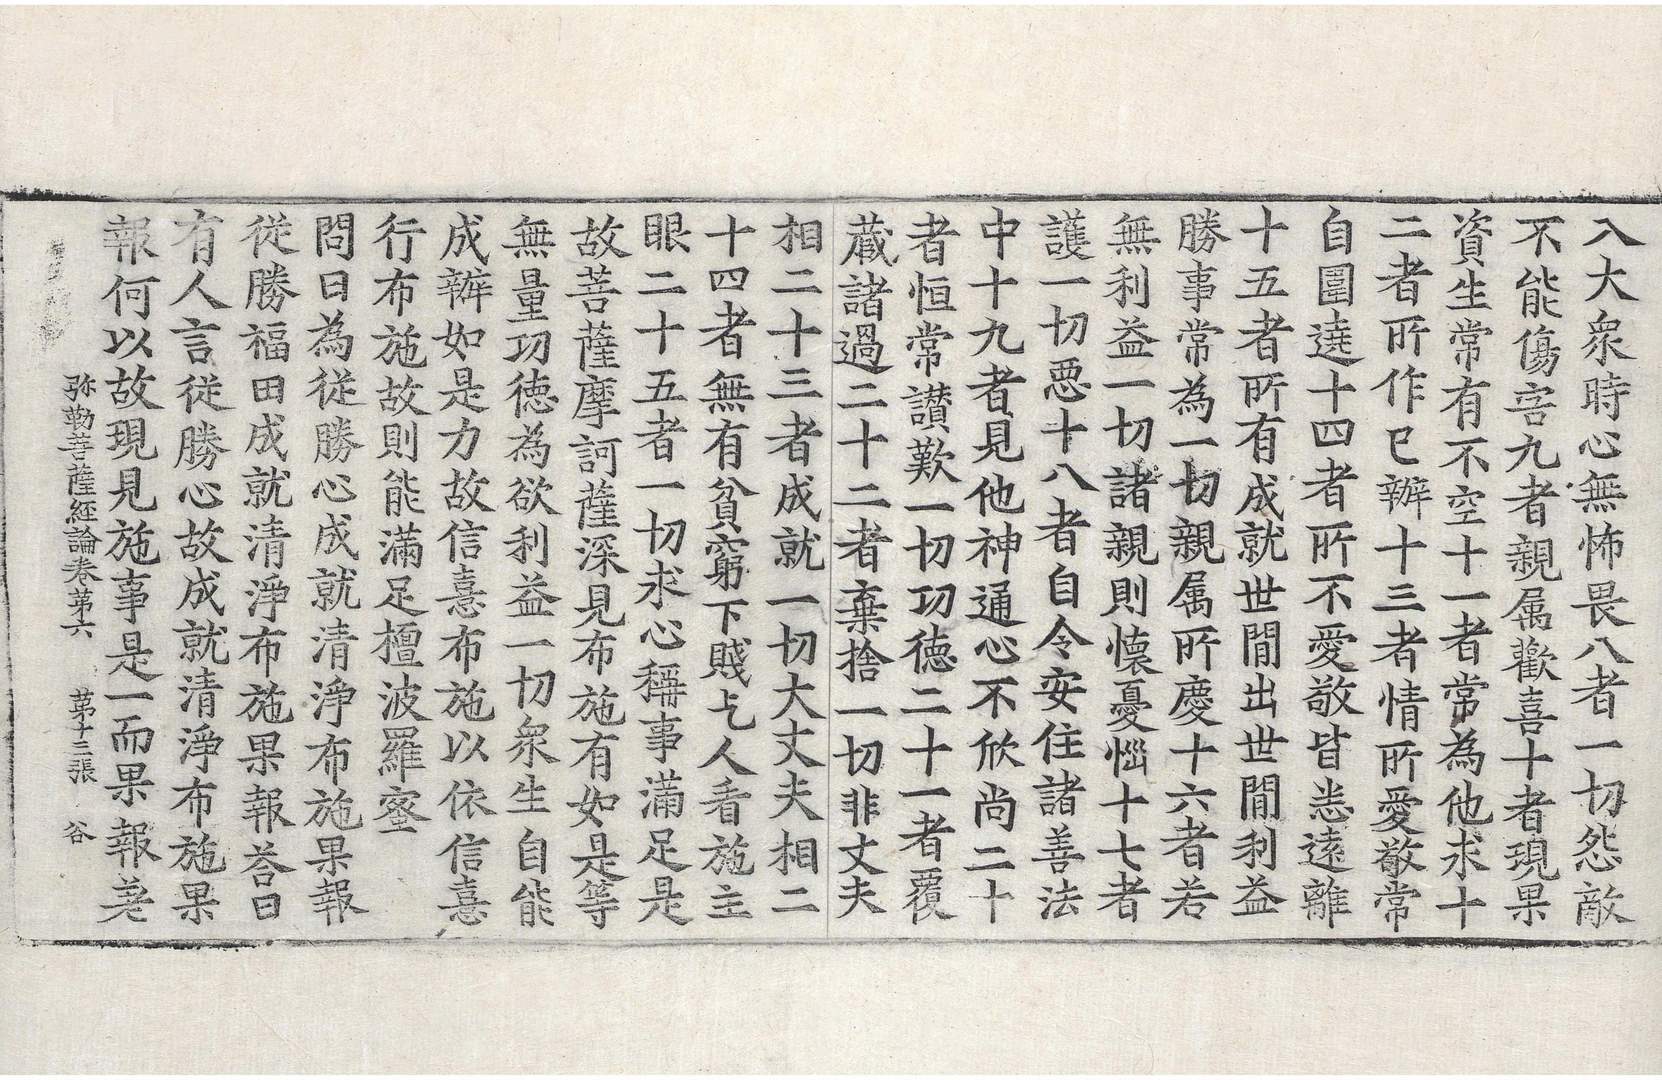 入大衆時心無怖畏八者一切怨敵
不能傷害九者親属歡喜十者現果
資生常有不空十一者常為他求十
二者所作已辦十三者情所愛敬常
自圍遶十四者所不愛敬皆悉遠離
十五者所有成就世間出世間利益
勝事常為一切親属所慶十六者若
無利益一切諸親則懷憂惱十七者
護一切惡十八者自令安住諸善法
中十九者見他神通心不欣尚二十
者恒常讃歎一切功德二十一者覆
蔵諸過二十二者棄捨一切非丈夫
相二十三者成就一切大丈夫相二
十四者無有貧窮下賎乞人看施主
眼二十五者一切求心稱事滿足是
故菩薩摩訶薩深見布施有如是等
無量功德為欲利益一切衆生自能
成辦如是力故信憙布施以依信憙
行布施故則能滿足檀波羅蜜
問曰為從勝心成就清淨布施果報
從勝福田成就清淨布施果報荅曰
有人言從勝心故成就清淨布施果
報何以故現見施事是一而果報差
弥勒菩薩經論卷第六 第十三張 谷